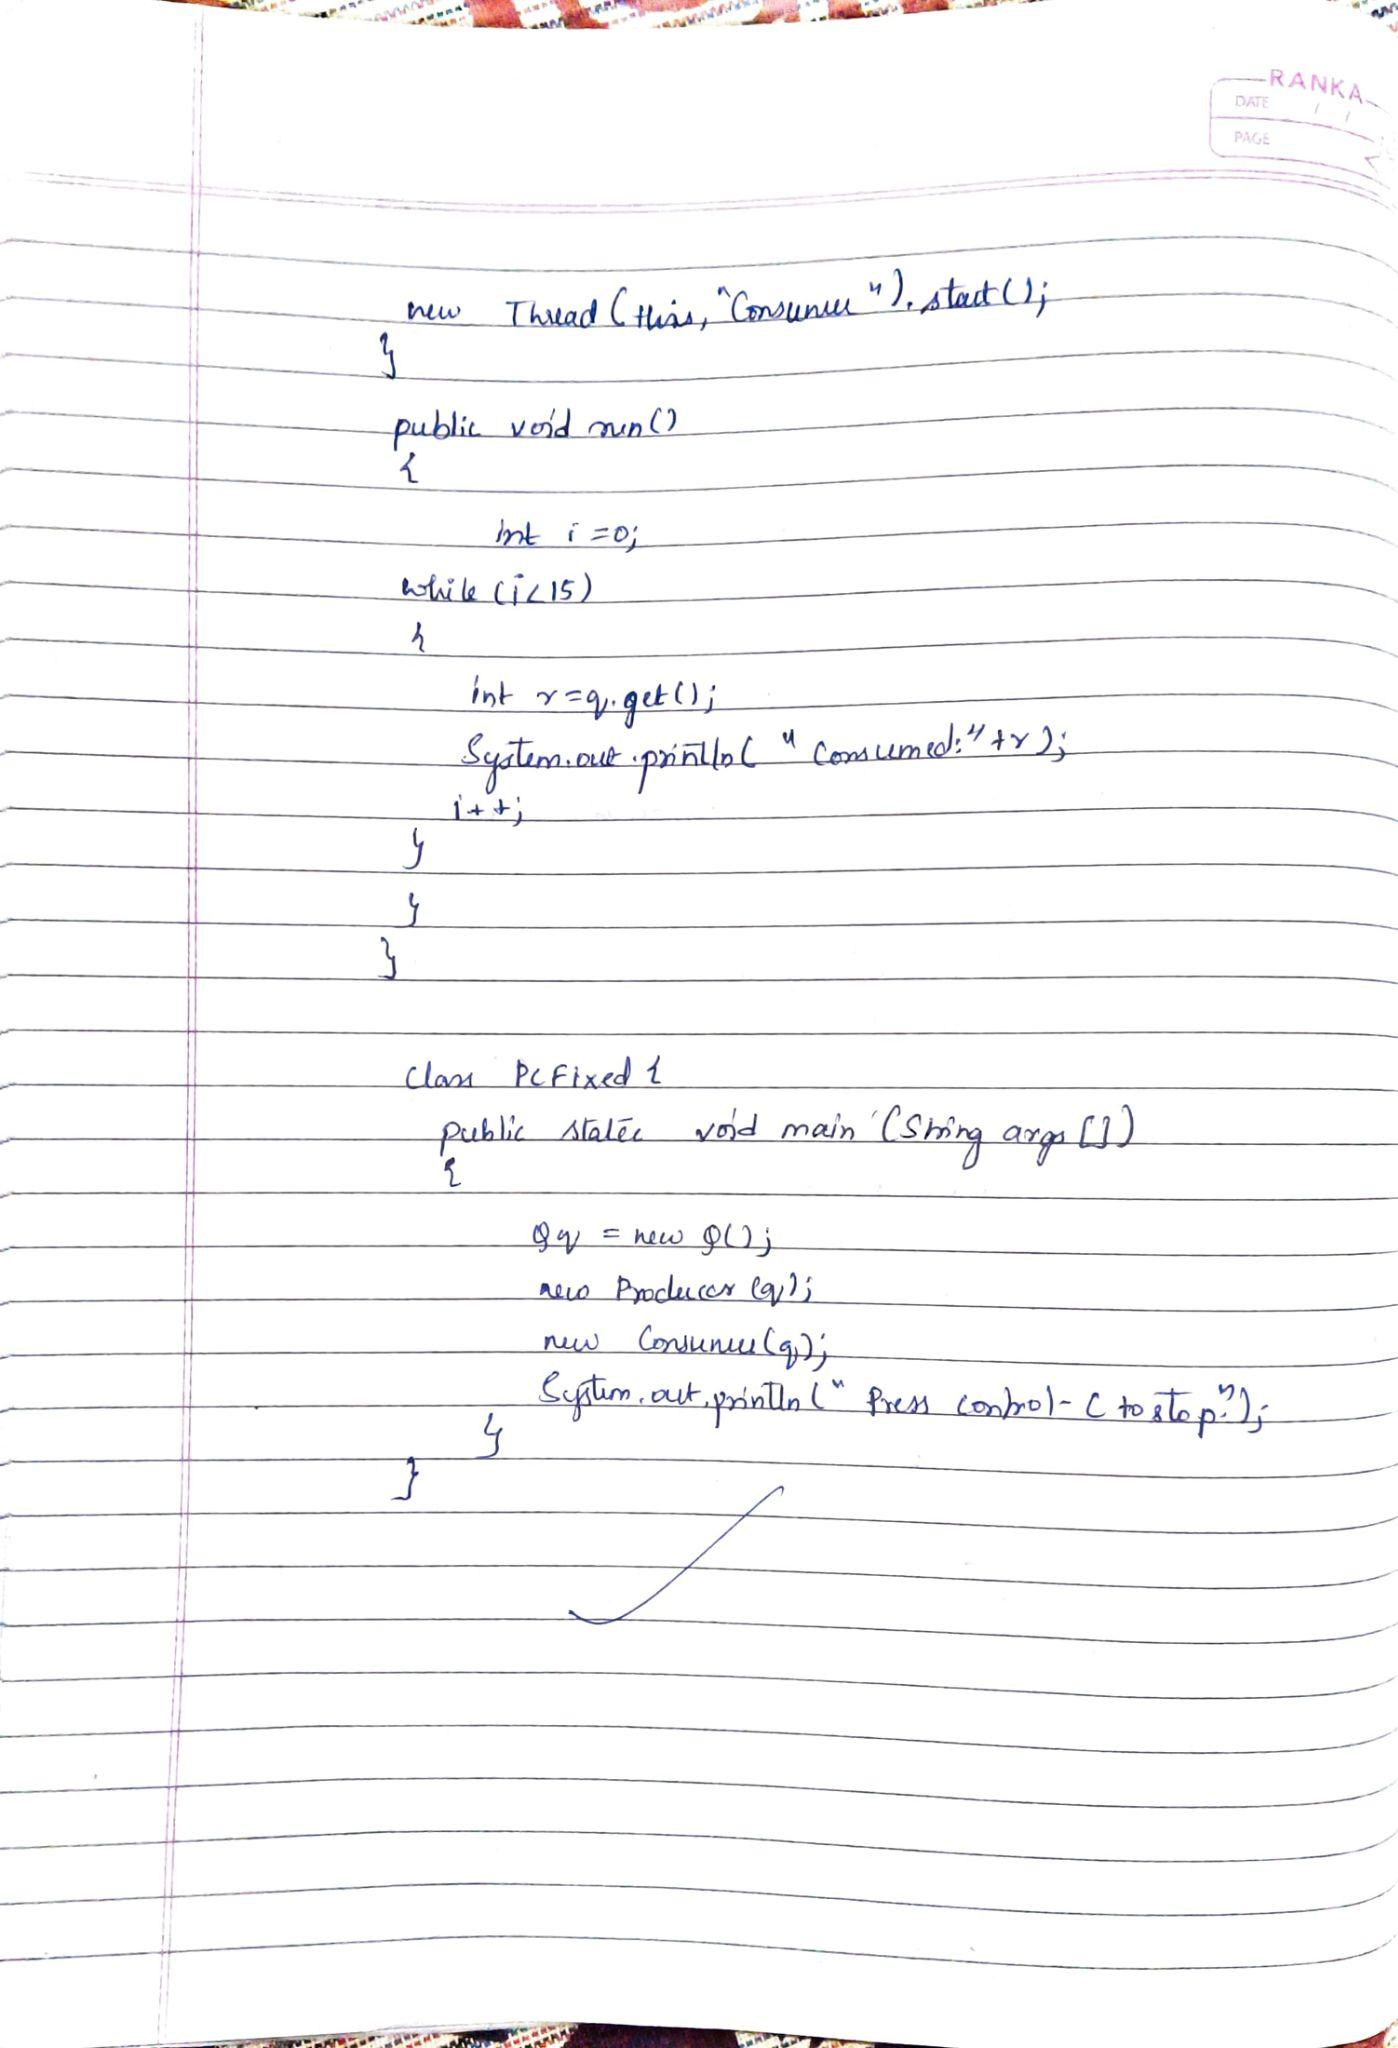 RANKA
DATE / /
PAGE
new Thread (this, "Consumer"). start();
}
public void run()
{
int i =0;
while (i<15)
{
int r=q.get();
System.out.println( " Consumed:"+r);
i++;
}
}
}
Class PCFixed {
public static void main (String args [])
{
Q q = new Q();
new Producer (q);
new Consumer(q);
System.out.println (" Press control- C to stop.");
}
}